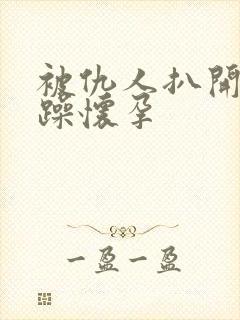 被仇人扒開
躁懷孕
一盈一盈